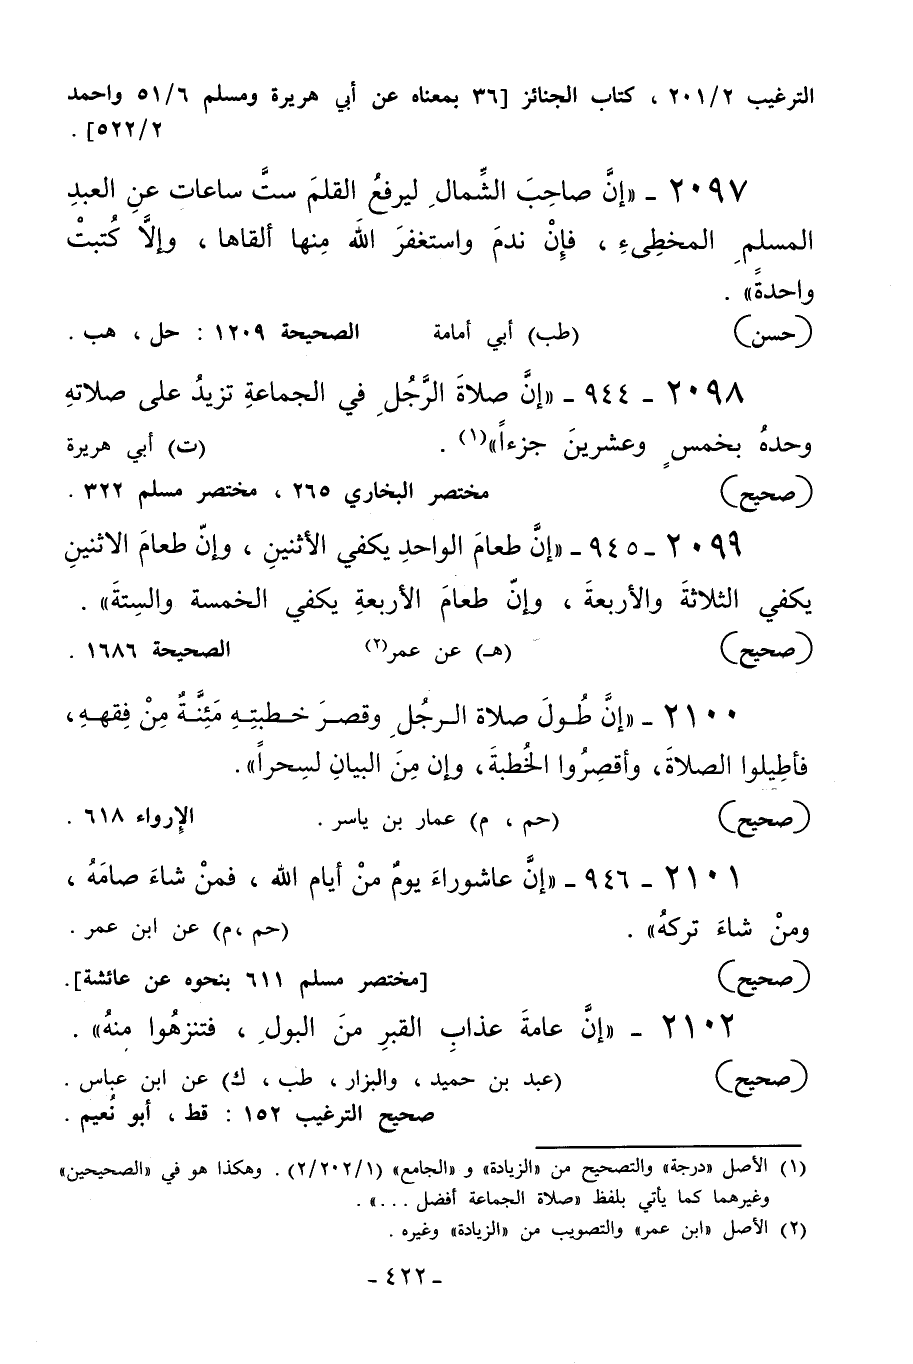 الترغيب ٢٠١/٢ ، كتاب الجنائز [٣٦ بمعناه عن أبي هريرة ومسلم ٥١/٦ واحمد
٥٢٢/٢] .
٢٠٩٧ ـ «إنَّ صاحِبَ الشِّمالِ ليرفعُ القلمَ ستَّ ساعات عنِ العبدِ
المسلمِ المخطِىءِ ، فإِنْ ندمَ واستغفرَ اللهَ مِنها ألقاها ، وإلَّا كُتبتْ
واحدةً» .
(حسن) (طب) أبي أمامة الصحيحة ١٢٠٩ : حل ، هب .
٢٠٩٨ ـ ٩٤٤ ـ «إنَّ صلاةَ الرَّجُلِ في الجماعةِ تزيدُ على صلاتهِ
وحدهُ بخمسٍ وعشرينَ جزءاً»(١) . (ت) أبي هريرة
(صحيح) مختصر البخاري ٢٦٥ ، مختصر مسلم ٣٢٢ .
٢٠٩٩ ـ ٩٤٥ ـ «إنَّ طعامَ الواحدِ يكفي الأثنينِ ، وإنّ طعامَ الاثنينِ
يكفي الثلاثةَ والأربعةَ ، وإنّ طعامَ الأربعةِ يكفي الخمسة والسِتةَ» .
(صحيح) (هـ) عن عمر(٢) الصحيحة ١٦٨٦ .
٢١٠٠ ـ «إنَّ طُولَ صلاة الرجُلِ وقصرَ خطبتِهِ مَئِنَّةٌ مِنْ فِقههِ،
فأطِيلوا الصلاةَ، وأقصِرُوا الخُطبةَ، وإن مِنَ البيانِ لسِحراً».
(صحيح) (حم ، م) عمار بن ياسر . الإرواء ٦١٨ .
٢١٠١ ـ ٩٤٦ ـ «إنَّ عاشوراءَ يومٌ منْ أيام الله ، فمنْ شاءَ صامَهُ ،
ومنْ شاءَ تركهُ» . (حم ،م) عن ابن عمر .
(صحيح) [مختصر مسلم ٦١١ بنحوه عن عائشة].
٢١٠٢ ـ «إنَّ عامةَ عذابِ القبرِ منَ البولِ ، فتنزهُوا منهُ» .
(صحيح) (عبد بن حميد ، والبزار ، طب ، ك) عن ابن عباس .
صحيح الترغيب ١٥٢ : قط ، أبو نُعيم .
(١) الأصل «درجة» والتصحيح من «الزيادة» و «الجامع» (٢/٢٠٢/١) . وهكذا هو في «الصحيحين»
وغيرهما كما يأتي بلفظ «صلاة الجماعة أفضل ...» .
(٢) الأصل «ابن عمر» والتصويب من «الزيادة» وغيره .
ـ ٤٢٢ ـ